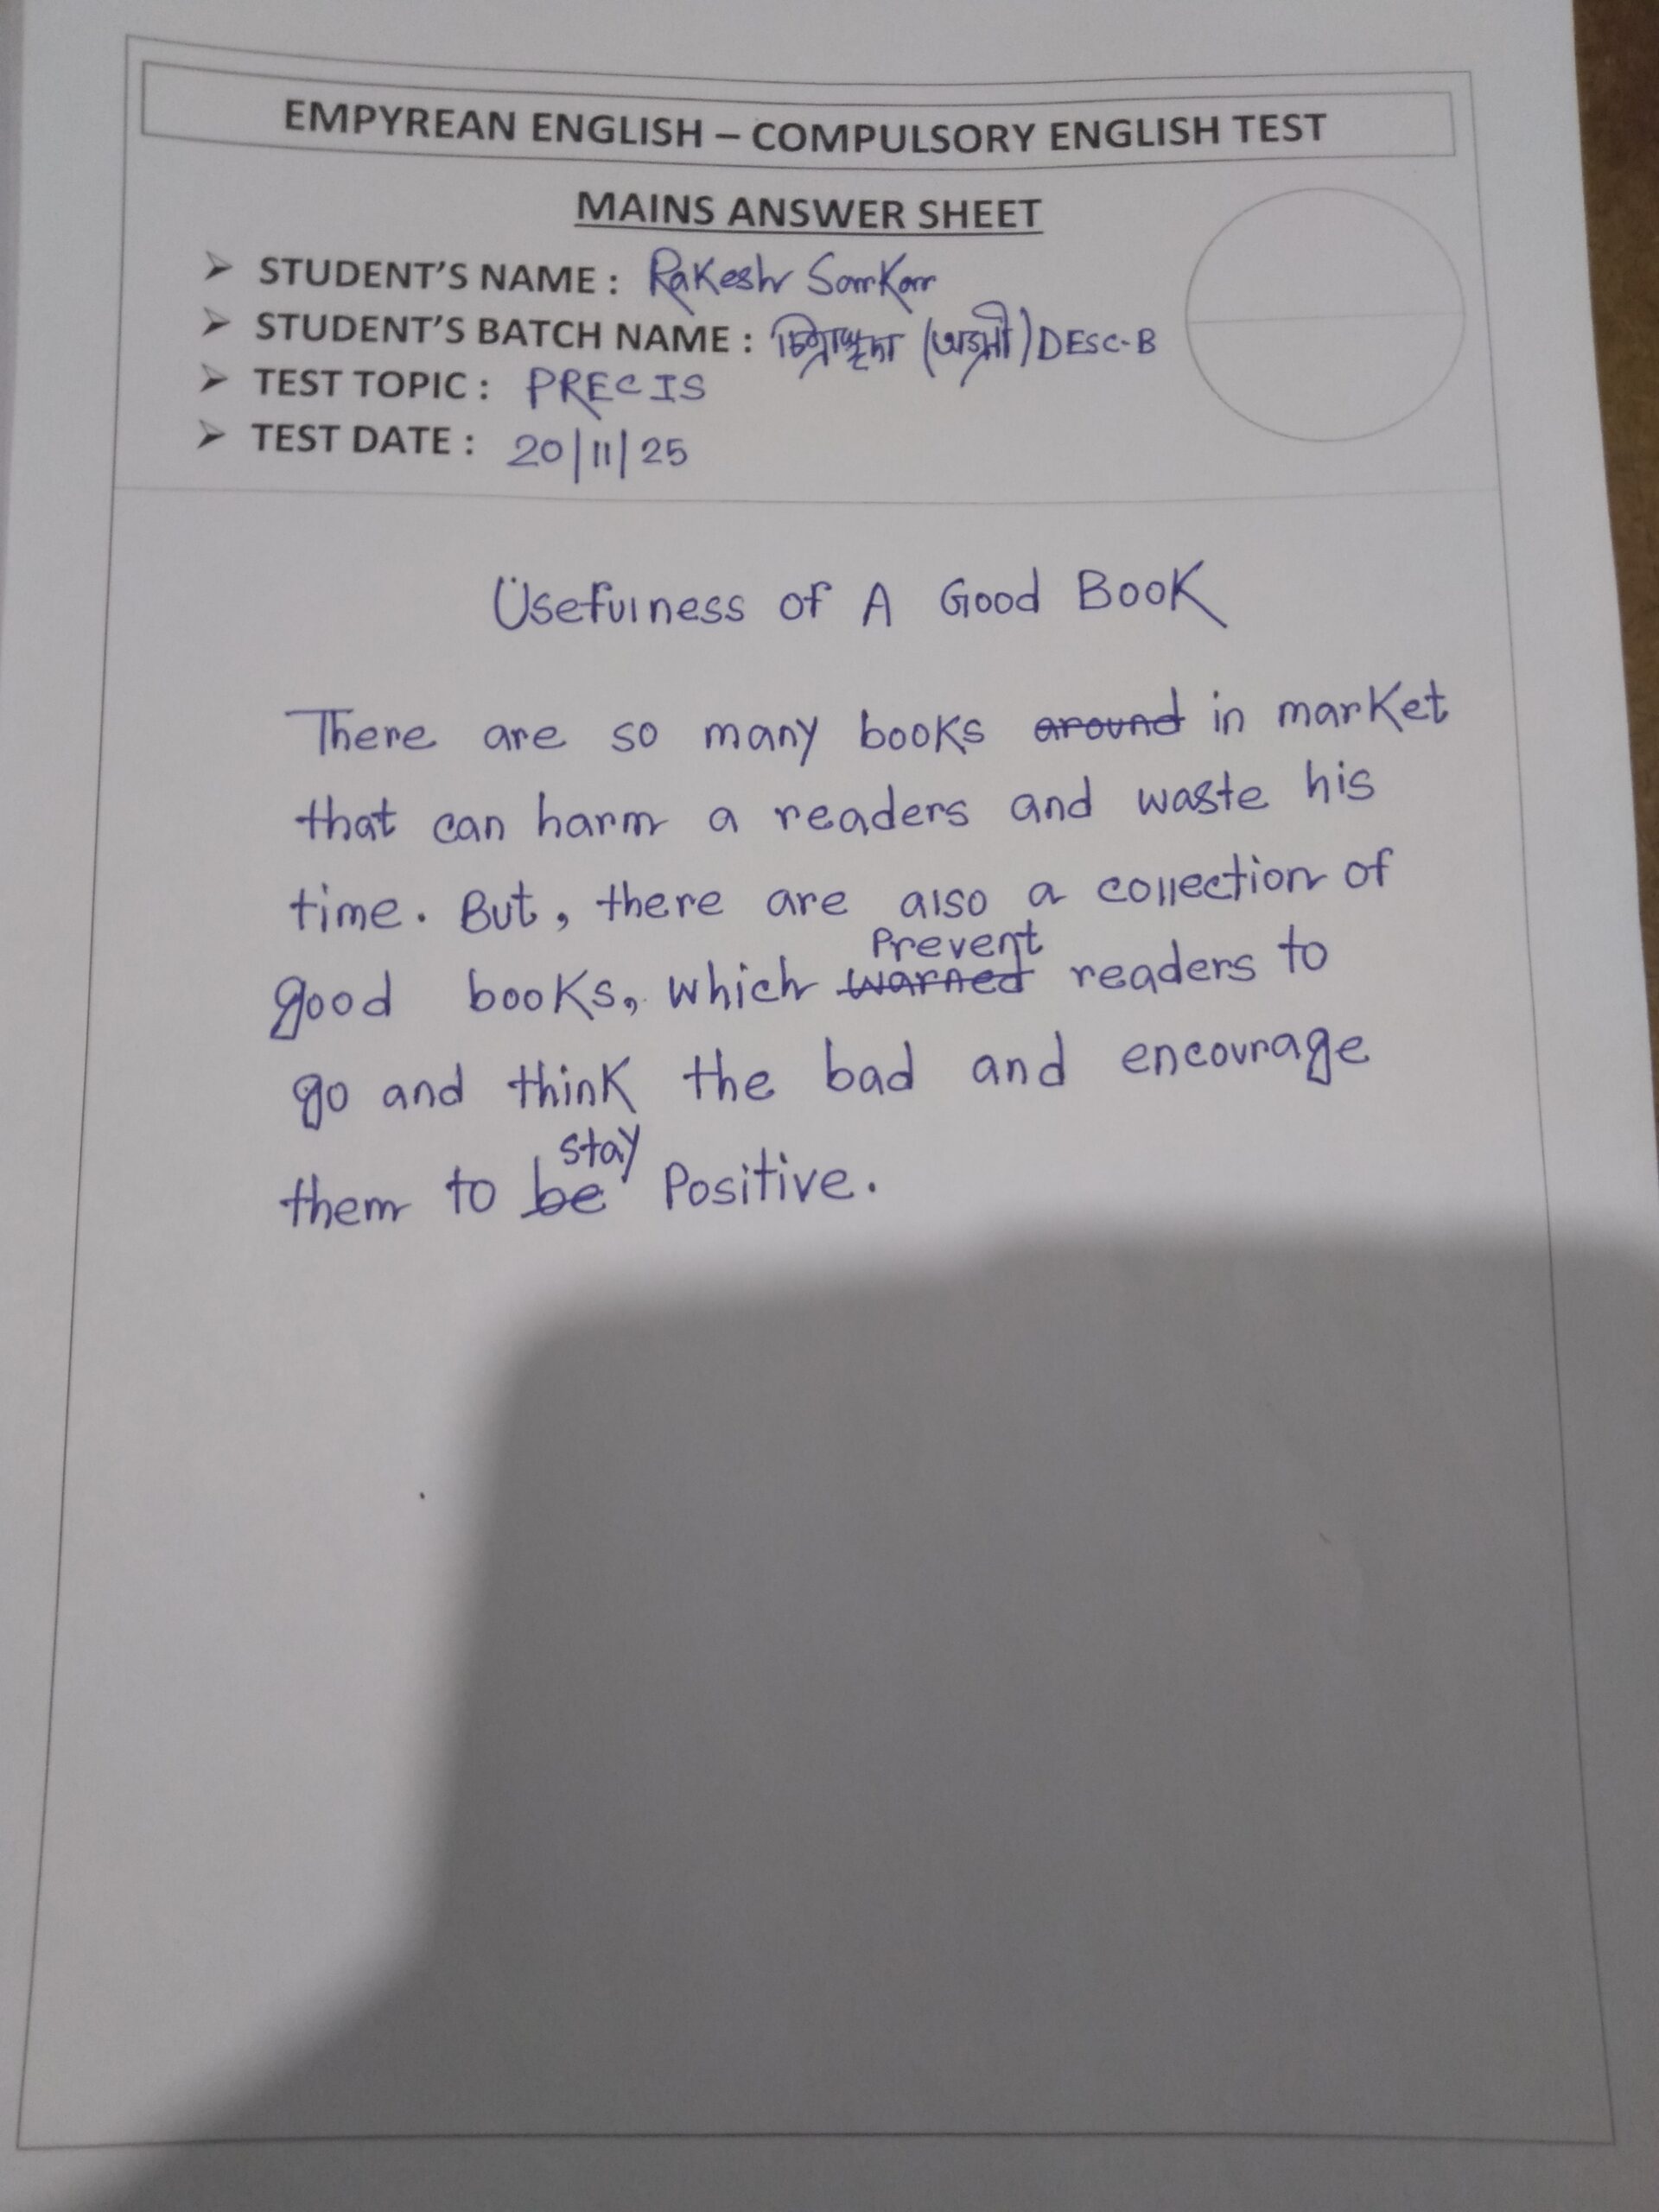 EMPYREAN ENGLISH – COMPULSORY ENGLISH TEST
MAINS ANSWER SHEET
➢ STUDENT'S NAME : Rakesh Sarkar
➢ STUDENT'S BATCH NAME : (অগ্রণী) DESC-B
➢ TEST TOPIC : PRECIS
➢ TEST DATE : 20/11/25
Usefulness of A Good Book
There are so many books around in market
that can harm a readers and waste his
time. But, there are also a collection of
Prevent
good books, which warned readers to
go and think the bad and encourage
stay
them to be Positive.